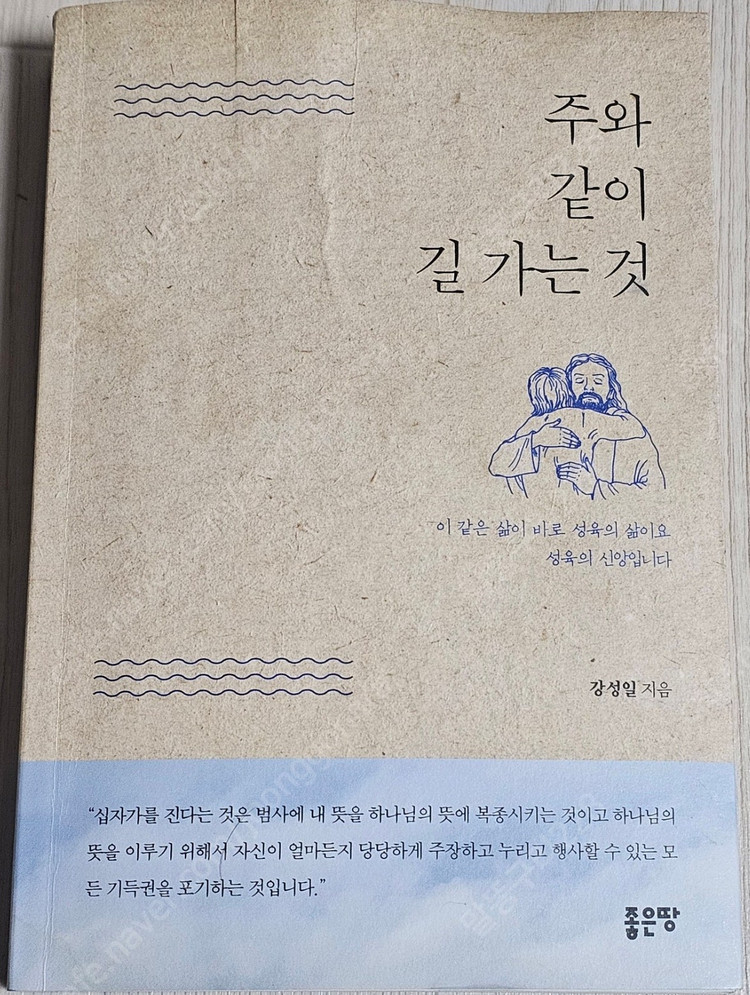 주와
같이
길 가는 것
이 같은 삶이 바로 성육의 삶이요
성육의 신앙입니다
강성일 지음
“십자가를 진다는 것은 범사에 내 뜻을 하나님의 뜻에 복종시키는 것이고 하나님의
뜻을 이루기 위해서 자신이 얼마든지 당당하게 주장하고 누리고 행사할 수 있는 모
든 기득권을 포기하는 것입니다.”
좋은땅